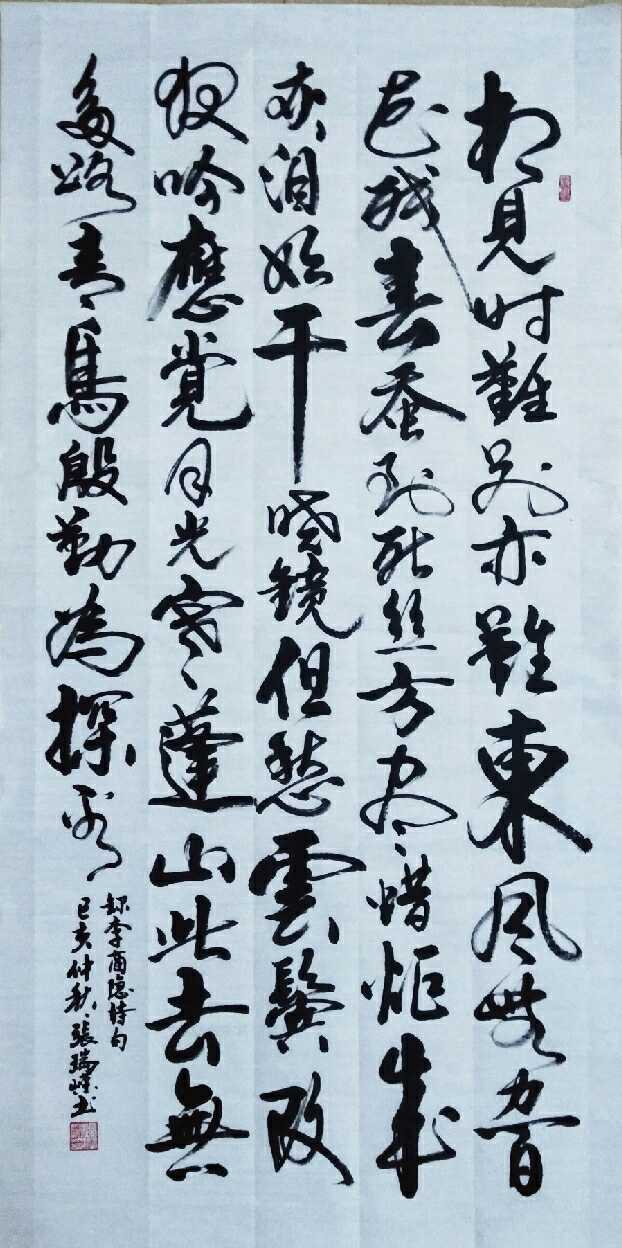 相見时難别亦難東风無力百
花残春蚕到死丝方尽蜡炬成
灰泪始干晓鏡但愁雲鬓改
夜吟應觉月光寒蓬山此去無
多路青鳥殷勤為探看
録李商隐詩句
己亥仲秋張瑞书